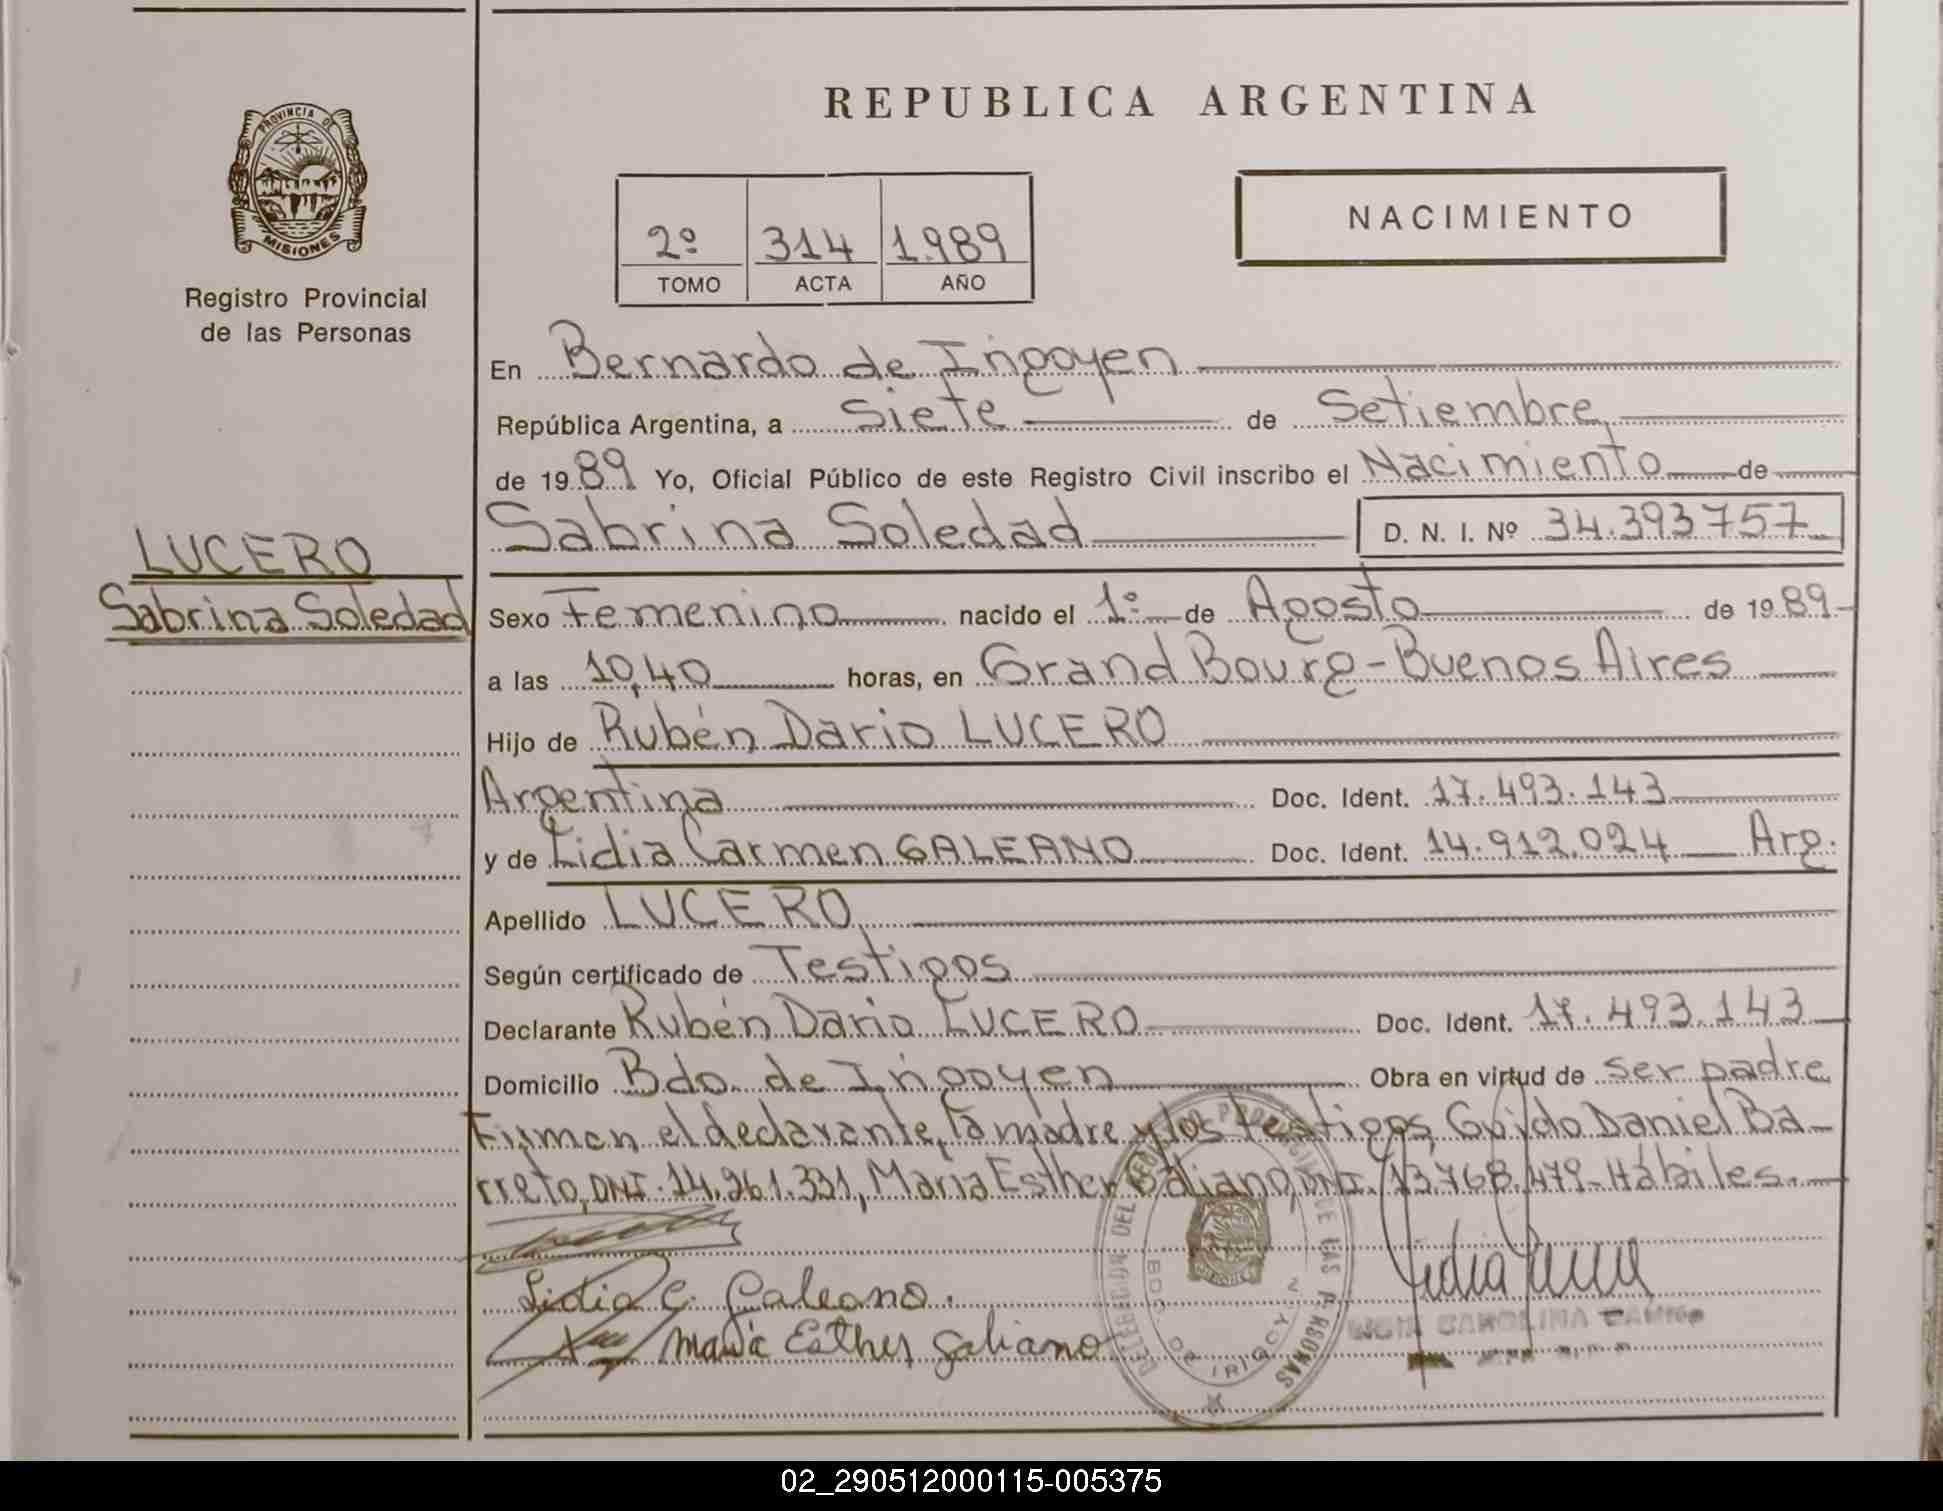 REPUBLICA ARGENTINA
PROVINCIA DE
MISIONES
Registro Provincial
de las Personas
NACIMIENTO
2º 314 1.989
TOMO ACTA AÑO
En Bernardo de Irigoyen
República Argentina, a Siete de Setiembre
de 1989 Yo, Oficial Público de este Registro Civil inscribo el Nacimiento de
Sabrina Soledad D. N. I. Nº 34.393757
LUCERO
Sabrina Soledad
Sexo Femenino nacido el 1º de Agosto de 1989
a las 10,40 horas, en Grand Bourg - Buenos Aires
Hijo de Rubén Dario LUCERO
Argentina Doc. Ident. 17.493.143
y de Lidia Carmen GALEANO Doc. Ident. 14.912.024 Arg.
Apellido LUCERO
Según certificado de Testigos
Declarante Rubén Dario LUCERO Doc. Ident. 17.493.143
Domicilio Bdo. de Irigoyen Obra en virtud de ser padre
Firman el declarante, la madre y los testigos, Guido Daniel Ba-
rreto, DNI. 14.261.331, Maria Esther Galiano, DNI. 13.768.479- Hábiles.
Lidia C. Galeano.
Maria Esther Galiano
DE LAS PERSONAS
BDO. DE IRIGOYEN
CAROLINA
02_290512000115-005375